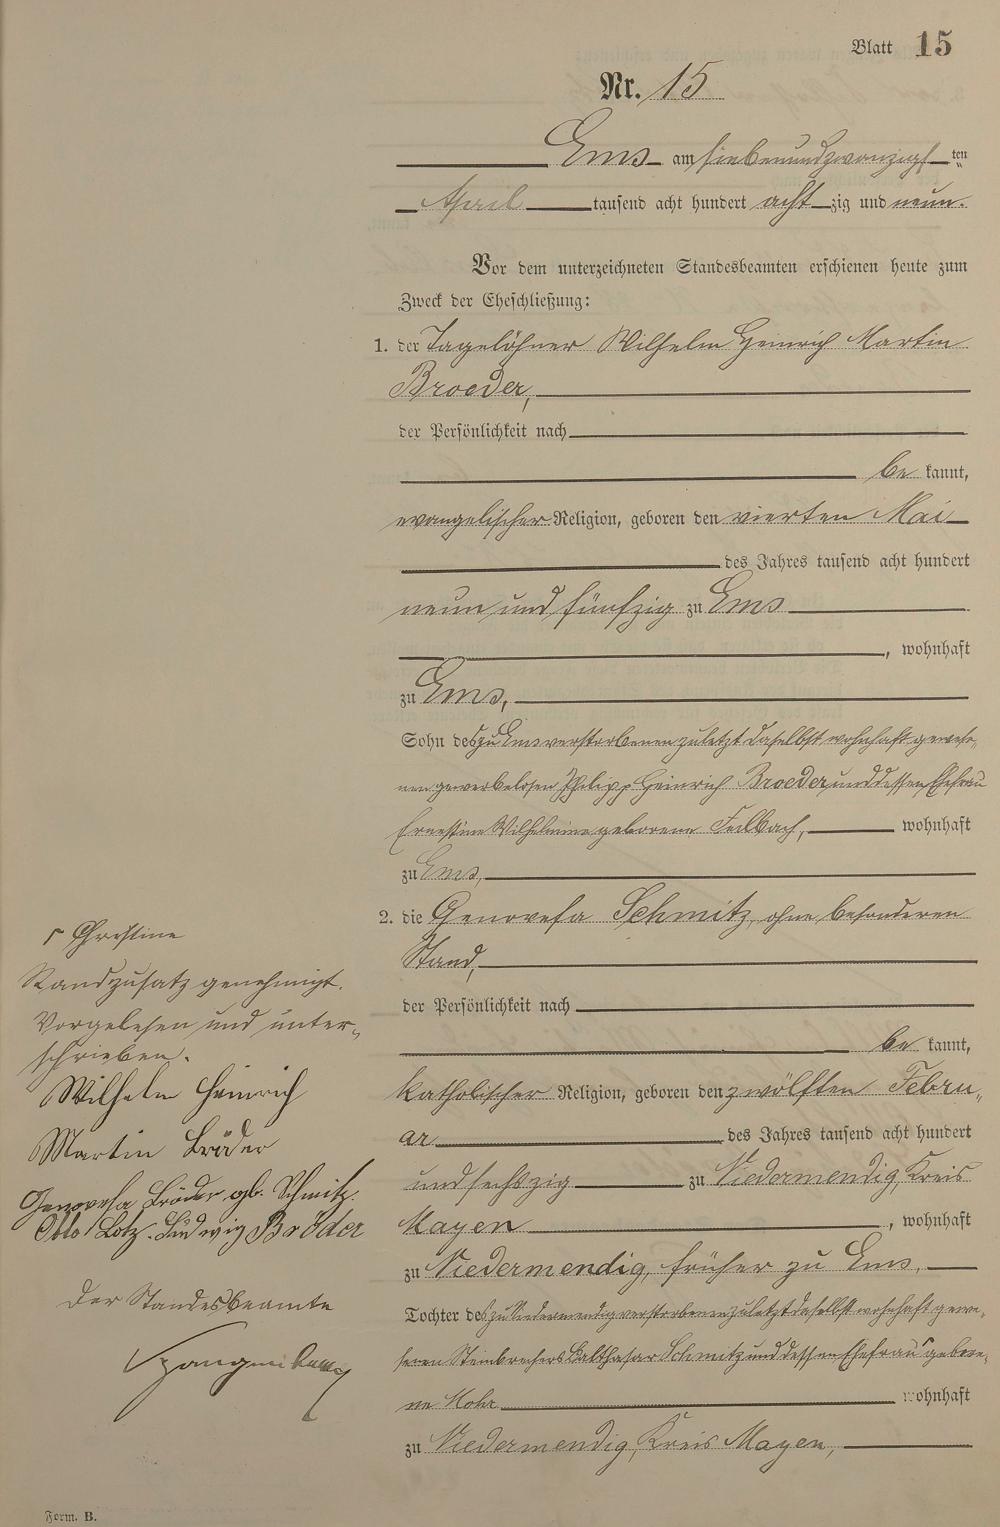 Blatt 15
Nr. 15
Ems am siebenundzwanzigsten
April tausend acht hundert achtzig und neun.
Vor dem unterzeichneten Standesbeamten erschienen heute zum
Zweck der Eheschließung:
1. der Tagelöhner Wilhelm Heinrich Martin
Broeder,
der Persönlichkeit nach
bekannt,
evangelischer Religion, geboren den vierten Mai
des Jahres tausend acht hundert
neun und fünfzig zu Ems
, wohnhaft
zu Ems,
Sohn des zu Ems verstorbenen zuletzt daselbst wohnhaft gewese-
nen gewerbelosen Philipp Heinrich Broeder und dessen Ehefrau
Ernestine Wilhelmine geborene Feilbach, wohnhaft
zu Ems,
2. die Genovefa Schmitz, ohne besonderen
Stand,
der Persönlichkeit nach
bekannt,
katholischer Religion, geboren den zwölften Febru-
ar des Jahres tausend acht hundert
und sechszig zu Niedermendig, Kreis
Mayen, wohnhaft
zu Niedermendig, früher zu Ems,
Tochter des zu Niedermendig verstorbenen zuletzt daselbst wohnhaft gewe-
senen Steinbrechers Balthasar Schmitz und dessen Ehefrau ┌ gebore-
ne Mohr wohnhaft
zu Niedermendig, Kreis Mayen,
┌ Christine
Randzusatz genehmigt.
Vorgelesen und unter-
schrieben.
Wilhelm Heinrich
Martin Bröder
Genovefa Bröder gb. Schmitz.
Otto Lotz. Ludwig Bröder
Der Standesbeamte
Form. B.